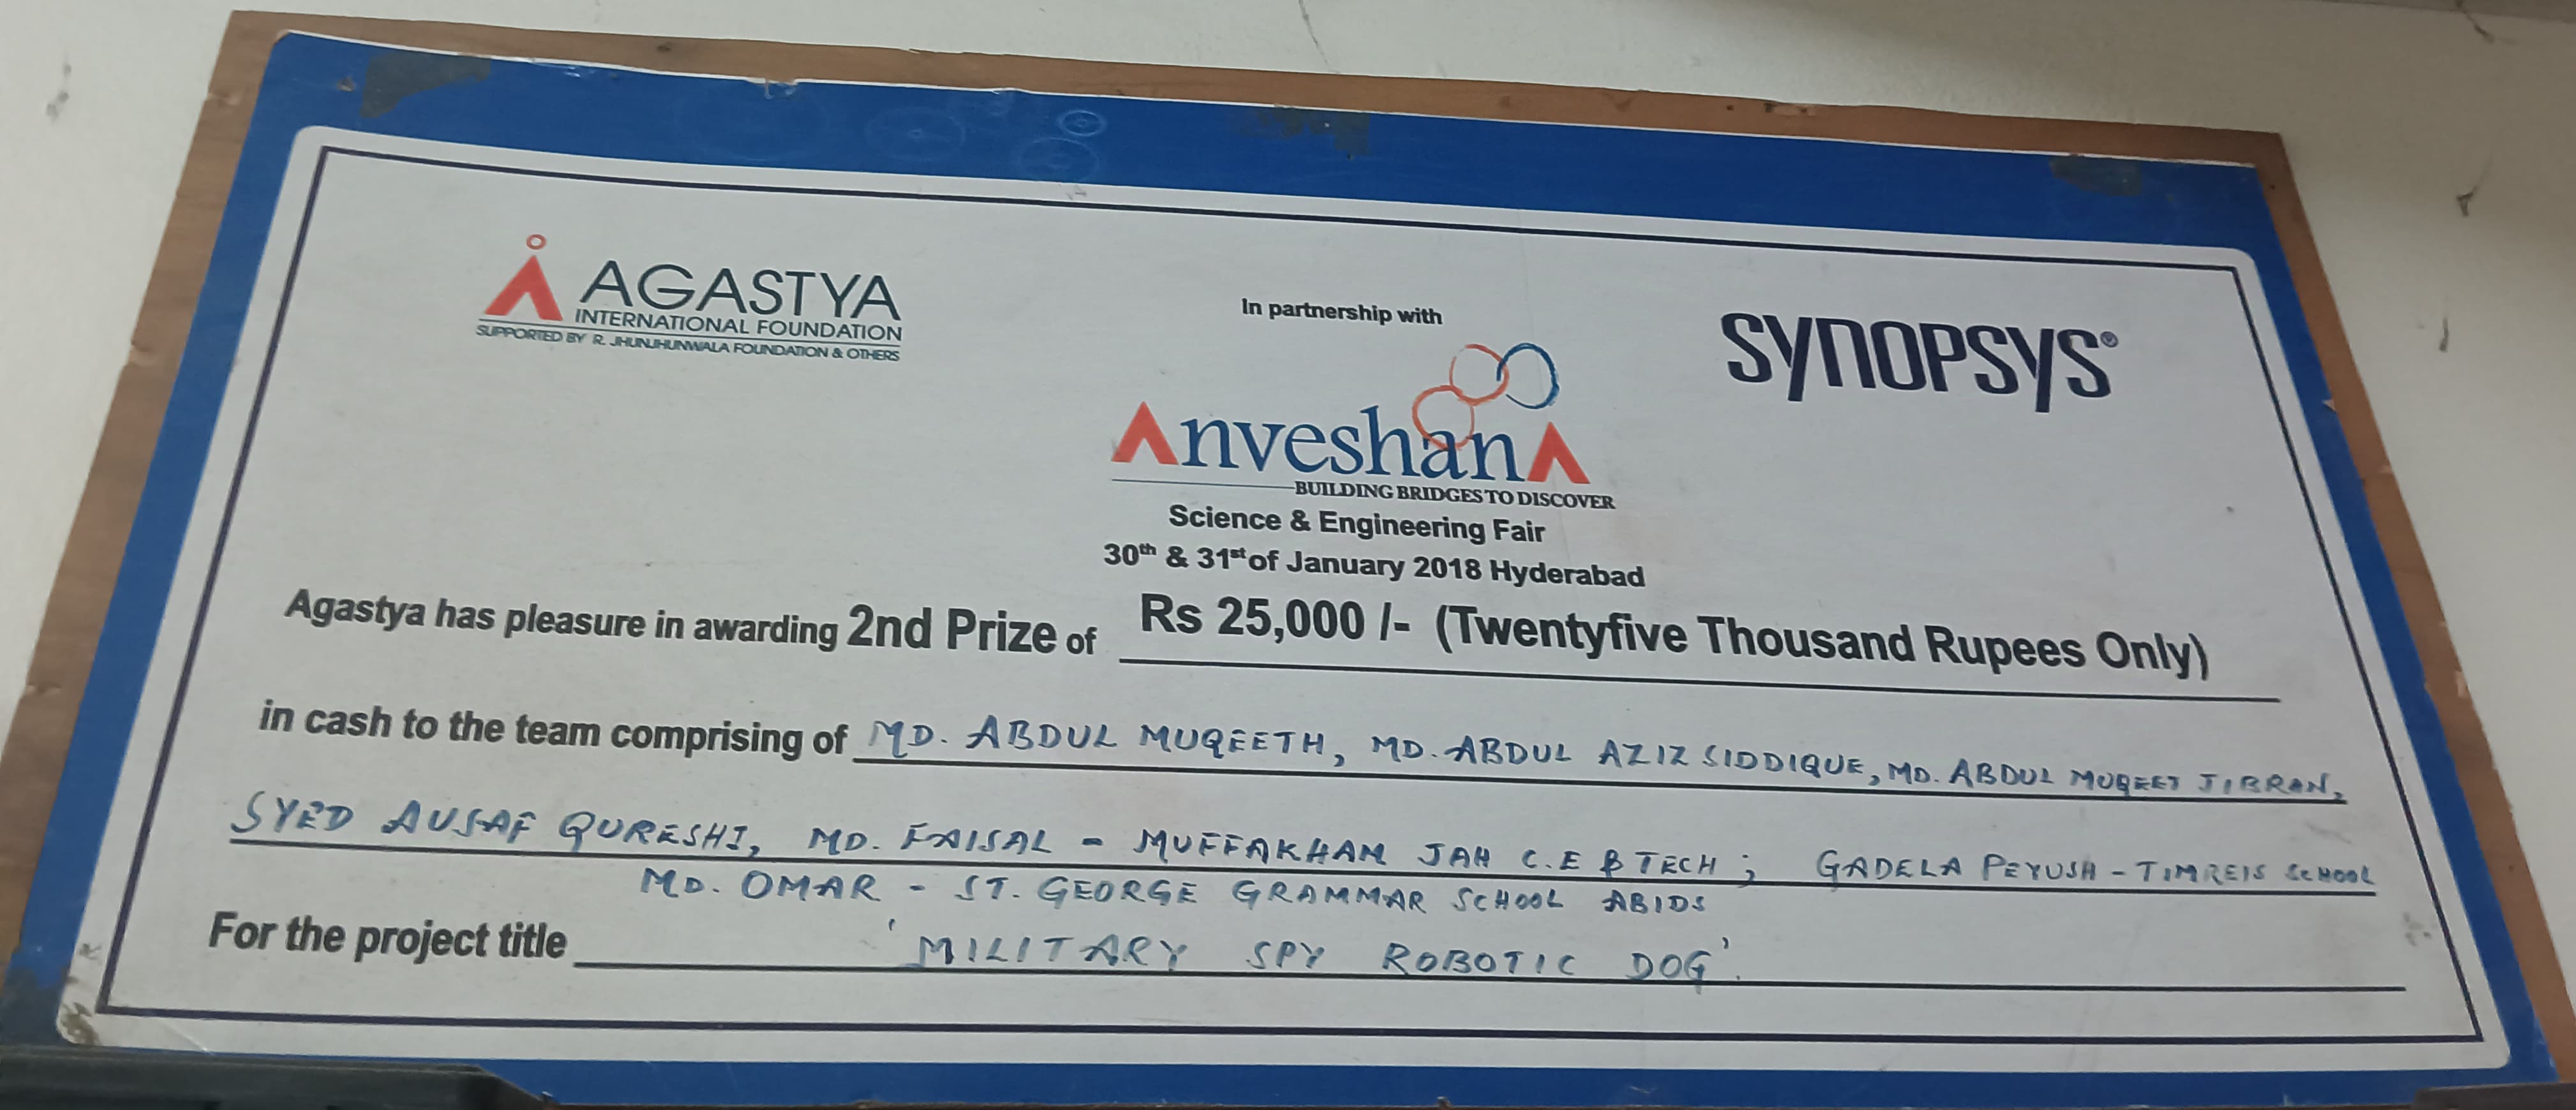 AGASTYA
INTERNATIONAL FOUNDATION
SUPPORTED BY R. JHUNJHUNWALA FOUNDATION & OTHERS
In partnership with
SYNOPSYS®
AnveshanA
BUILDING BRIDGES TO DISCOVER
Science & Engineering Fair
30th & 31st of January 2018 Hyderabad
Agastya has pleasure in awarding 2nd Prize of Rs 25,000 /- (Twentyfive Thousand Rupees Only)
in cash to the team comprising of MD. ABDUL MUQEETH, MD. ABDUL AZIZ SIDDIQUE, MD. ABDUL MUQEET JIBRAN,
SYED AUSAF QURESHI, MD. FAISAL - MUFFAKHAM JAH C.E & TECH ; GADELA PEYUSH - TIMREIS SCHOOL
MD. OMAR - ST. GEORGE GRAMMAR SCHOOL ABIDS
For the project title 'MILITARY SPY ROBOTIC DOG'.